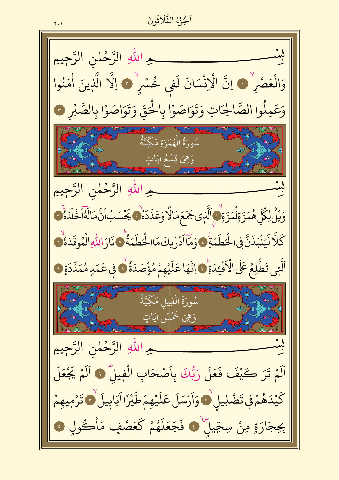 اَلْجُزْءُ الثَّلَاثُونَ
٦٠١
بِسْمِ اللّٰهِ الرَّحْمٰنِ الرَّحِيمِ
وَالْعَصْرِۙ ١ اِنَّ الْاِنْسَانَ لَفِى خُسْرٍۙ ٢ اِلَّا الَّذِينَ اٰمَنُوا
وَعَمِلُوا الصَّالِحَاتِ وَتَوَاصَوْا بِالْحَقِّ وَتَوَاصَوْا بِالصَّبْرِ ٣
سُورَةُ الْهُمَزَةِ مَكِّيَّةٌ
وَهِىَ تِسْعُ اٰيَاتٍ
بِسْمِ اللّٰهِ الرَّحْمٰنِ الرَّحِيمِ
وَيْلٌ لِكُلِّ هُمَزَةٍ لُمَزَةٍۙ ١ اَلَّذِى جَمَعَ مَالًا وَعَدَّدَهُۙ ٢ يَحْسَبُ اَنَّ مَالَهُٓ اَخْلَدَهُۚ ٣
كَلَّا لَيُنْبَذَنَّ فِى الْحُطَمَةِۘ ٤ وَمَٓا اَدْرٰيكَ مَا الْحُطَمَةُۜ ٥ نَارُ اللّٰهِ الْمُوقَدَةُۙ ٦
اَلَّتِى تَطَّلِعُ عَلَى الْاَفْـِٔدَةِۜ ٧ اِنَّهَا عَلَيْهِمْ مُؤْصَدَةٌۙ ٨ فِى عَمَدٍ مُمَدَّدَةٍ ٩
سُورَةُ الْفِيلِ مَكِّيَّةٌ
وَهِىَ خَمْسُ اٰيَاتٍ
بِسْمِ اللّٰهِ الرَّحْمٰنِ الرَّحِيمِ
اَلَمْ تَرَ كَيْفَ فَعَلَ رَبُّكَ بِاَصْحَابِ الْفِيلِۜ ١ اَلَمْ يَجْعَلْ
كَيْدَهُمْ فِى تَضْلِيلٍۙ ٢ وَاَرْسَلَ عَلَيْهِمْ طَيْرًا اَبَابِيلَۙ ٣ تَرْمِيهِمْ
بِحِجَارَةٍ مِنْ سِجِّيلٍۙ ٤ فَجَعَلَهُمْ كَعَصْفٍ مَأْكُولٍ ٥